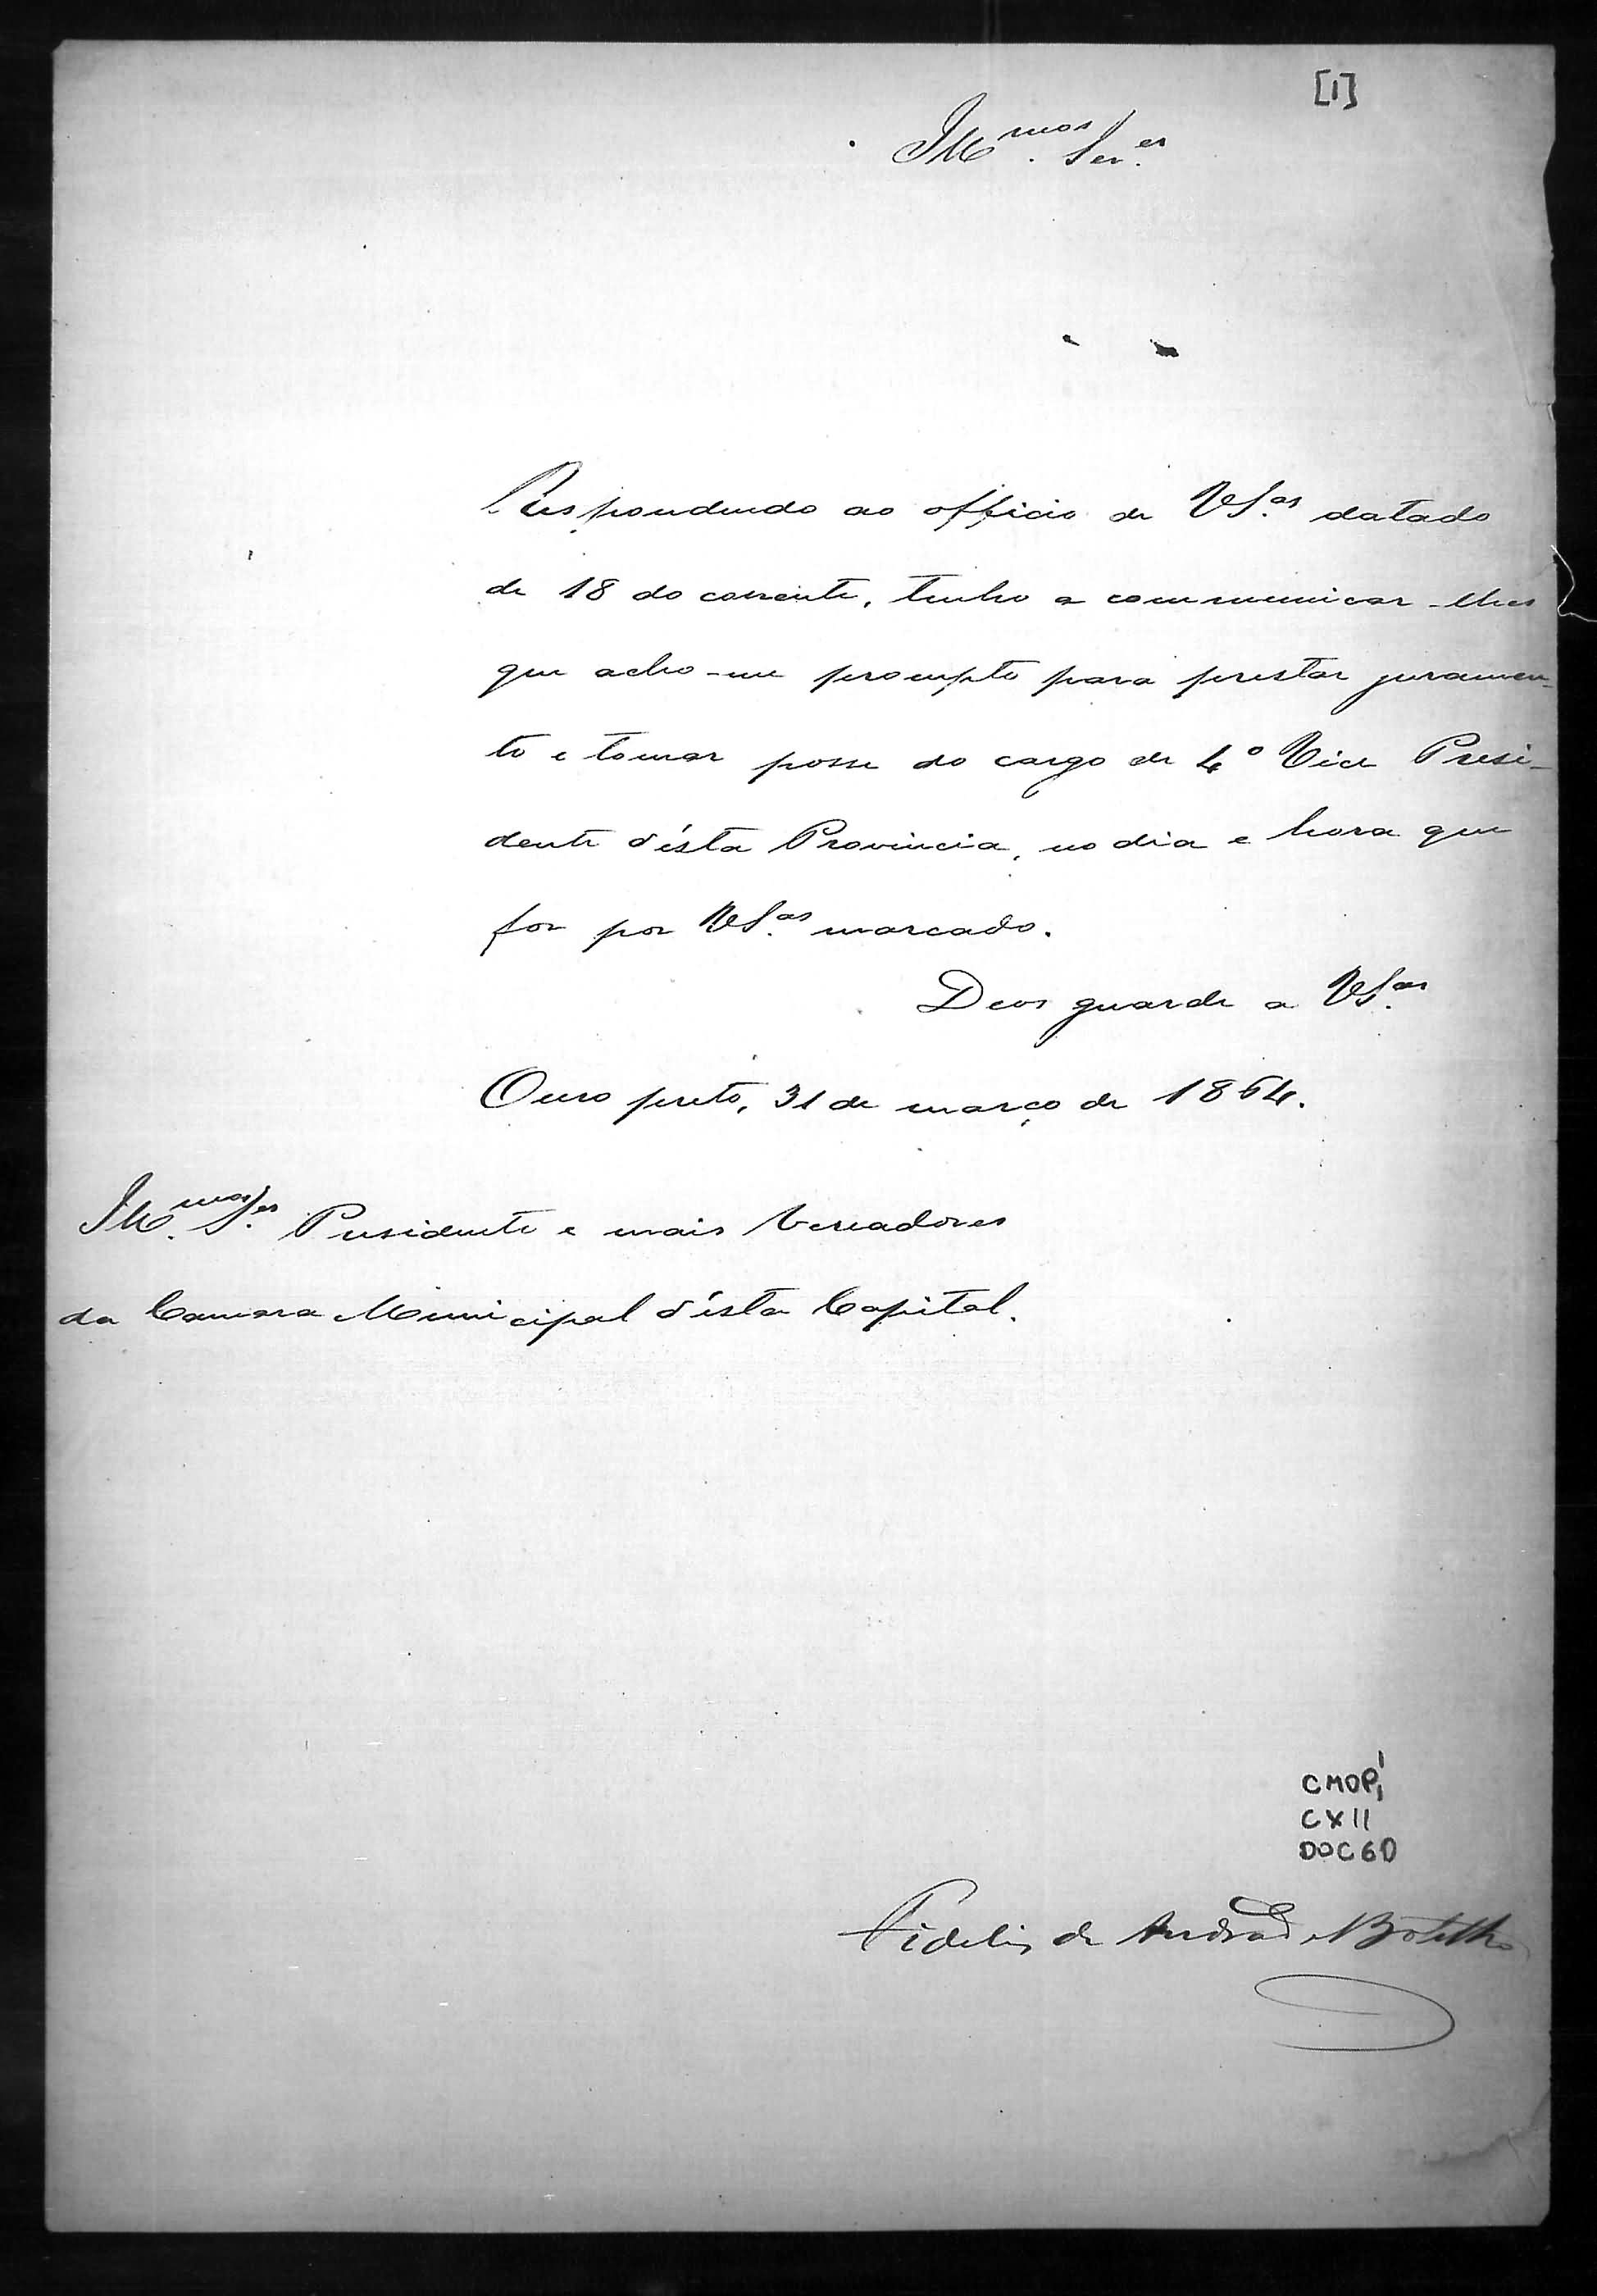 [1]
Ill.mos Sen.es
Respondendo ao officio de VS.as datado
de 18 do corrente, tenho a communicar-lhes
que acho-me prompto para prestar juramen-
to e tomar posse do cargo de 4º Vice Presi-
dente d'ésta Provincia, no dia e hora que
for por VS.as marcado.
Deos guarde a VS.as
Ouro preto, 31 de março de 1864.
Ill.mos S.es Presidente e mais Vereadores
da Camara Municipal d'ésta Capital.
CMOP
CX11
DOC60
Fidelis de Andrade Botelho